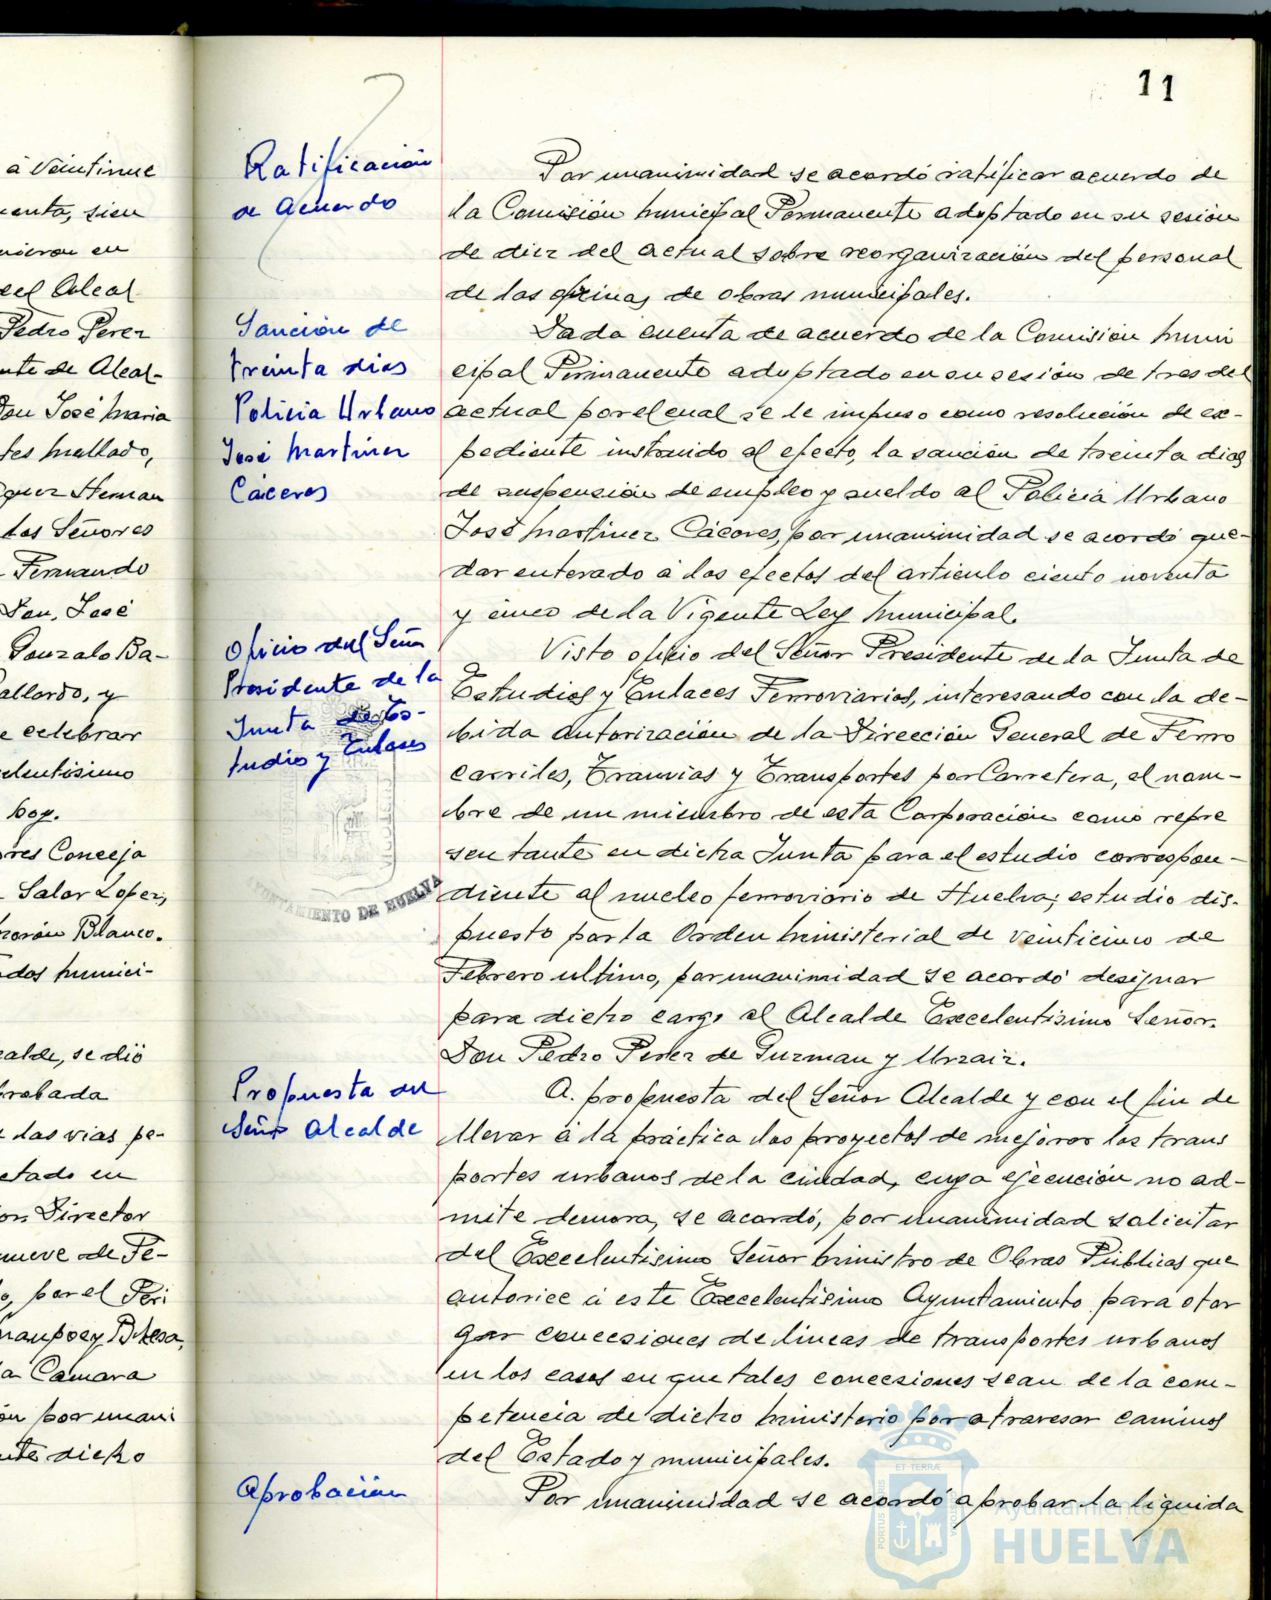 11
à veintinue
cuenta, sien
nieron en
del Alcal
Pedro Perez
nte de Alcal-
Don José Maria
tes Mallado,
guez Hernan
los Señores
Fernando
Don, José
Gonzalo Ba-
allardo, y
e celebrar
celentisimo
hoy.
ores Conceja
Salar Lopez,
Morón Blanco.
ados munici-
calde, se dió
probada
las vias pe-
ctado en
or Director
nueve de Fe-
o, por el Peri
la Camara
ón por unani
nte dicho
Ratificación
de acuerdo
Por unanimidad se acordó ratificar acuerdo de
la Comisión Municipal Permanente adoptado en su sesión
de diez del actual sobre reorganización del personal
de las oficinas de obras municipales.
Sanción de
treinta dias
Policia Urbano
José Martinez
Cáceres
Dada cuenta de acuerdo de la Comisión Muni
cipal Permanente adoptado en su sesión de tres del
actual por el cual se le impuso como resolución de ex-
pediente instruido al efecto, la sanción de treinta dias
de suspensión de empleo y sueldo al Policia Urbano
José Martinez Cáceres, por unanimidad se acordó que-
dar enterado á los efectos del articulo ciento noventa
y cinco de la Vigente Ley Municipal.
Oficio del Señor
Presidente de la
Junta de Es-
tudios y Enlaces
AYUNTAMIENTO DE HUELVA
Visto oficio del Señor Presidente de la Junta de
Estudios y Enlaces Ferroviarios, interesando con la de-
bida autorización de la Dirección General de Ferro
carriles, Tranvias y Transportes por Carretera, el nom-
bre de un miembro de esta Corporación como repre
sentante en dicha Junta para el estudio correspon-
diente al nucleo ferroviario de Huelva; estudio dis-
puesto por la Orden Ministerial de veinticinco de
Febrero ultimo, por unanimidad se acordó designar
para dicho cargo al Alcalde Excelentisimo Señor.
Don Pedro Perez de Guzman y Urzaiz.
Propuesta del
Señor Alcalde
A. propuesta del Señor Alcalde y con el fin de
llevar á la práctica los proyectos de mejorar los trans
portes urbanos de la ciudad, cuya ejecución no ad-
mite demora, se acordó, por unanimidad solicitar
del Excelentisimo Señor Ministro de Obras Públicas que
autorice á este Excelentisimo Ayuntamiento para otor
gar concesiones de lineas de transportes urbanos
en los casos en que tales concesiones sean de la com-
petencia de dicho Ministerio por atravesar caminos
del Estado y municipales.
Aprobación
Por unanimidad se acordó aprobar la liquida
ET TERRÆ
PORTUS MARIS
CUSTODIA
Ayuntamiento de
HUELVA